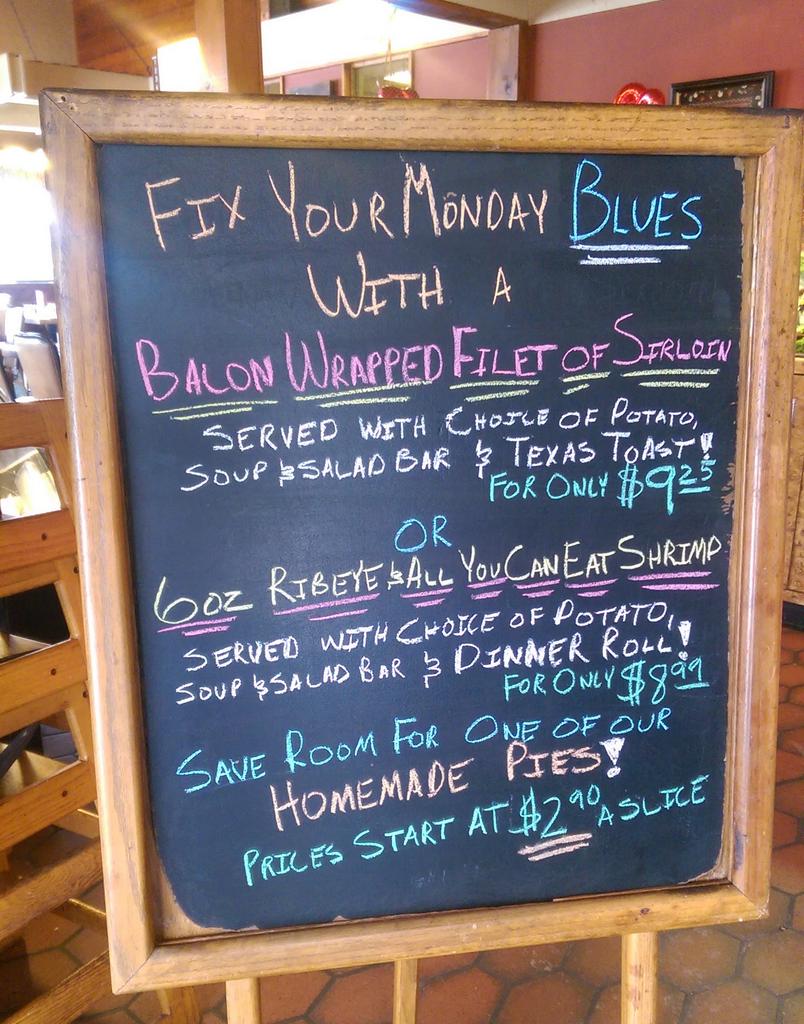 FIX YOUR MONDAY BLUES
WITH A
BACON WRAPPED FILET OF SIRLOIN
SERVED WITH CHOICE OF POTATO,
SOUP & SALAD BAR & TEXAS TOAST!
FOR ONLY $9.25
OR
6oz RIBEYE & ALL YOU CAN EAT SHRIMP
SERVED WITH CHOICE OF POTATO,
SOUP & SALAD BAR & DINNER ROLL!
FOR ONLY $8.99
SAVE ROOM FOR ONE OF OUR
HOMEMADE PIES!
PRICES START AT $2.90 A SLICE